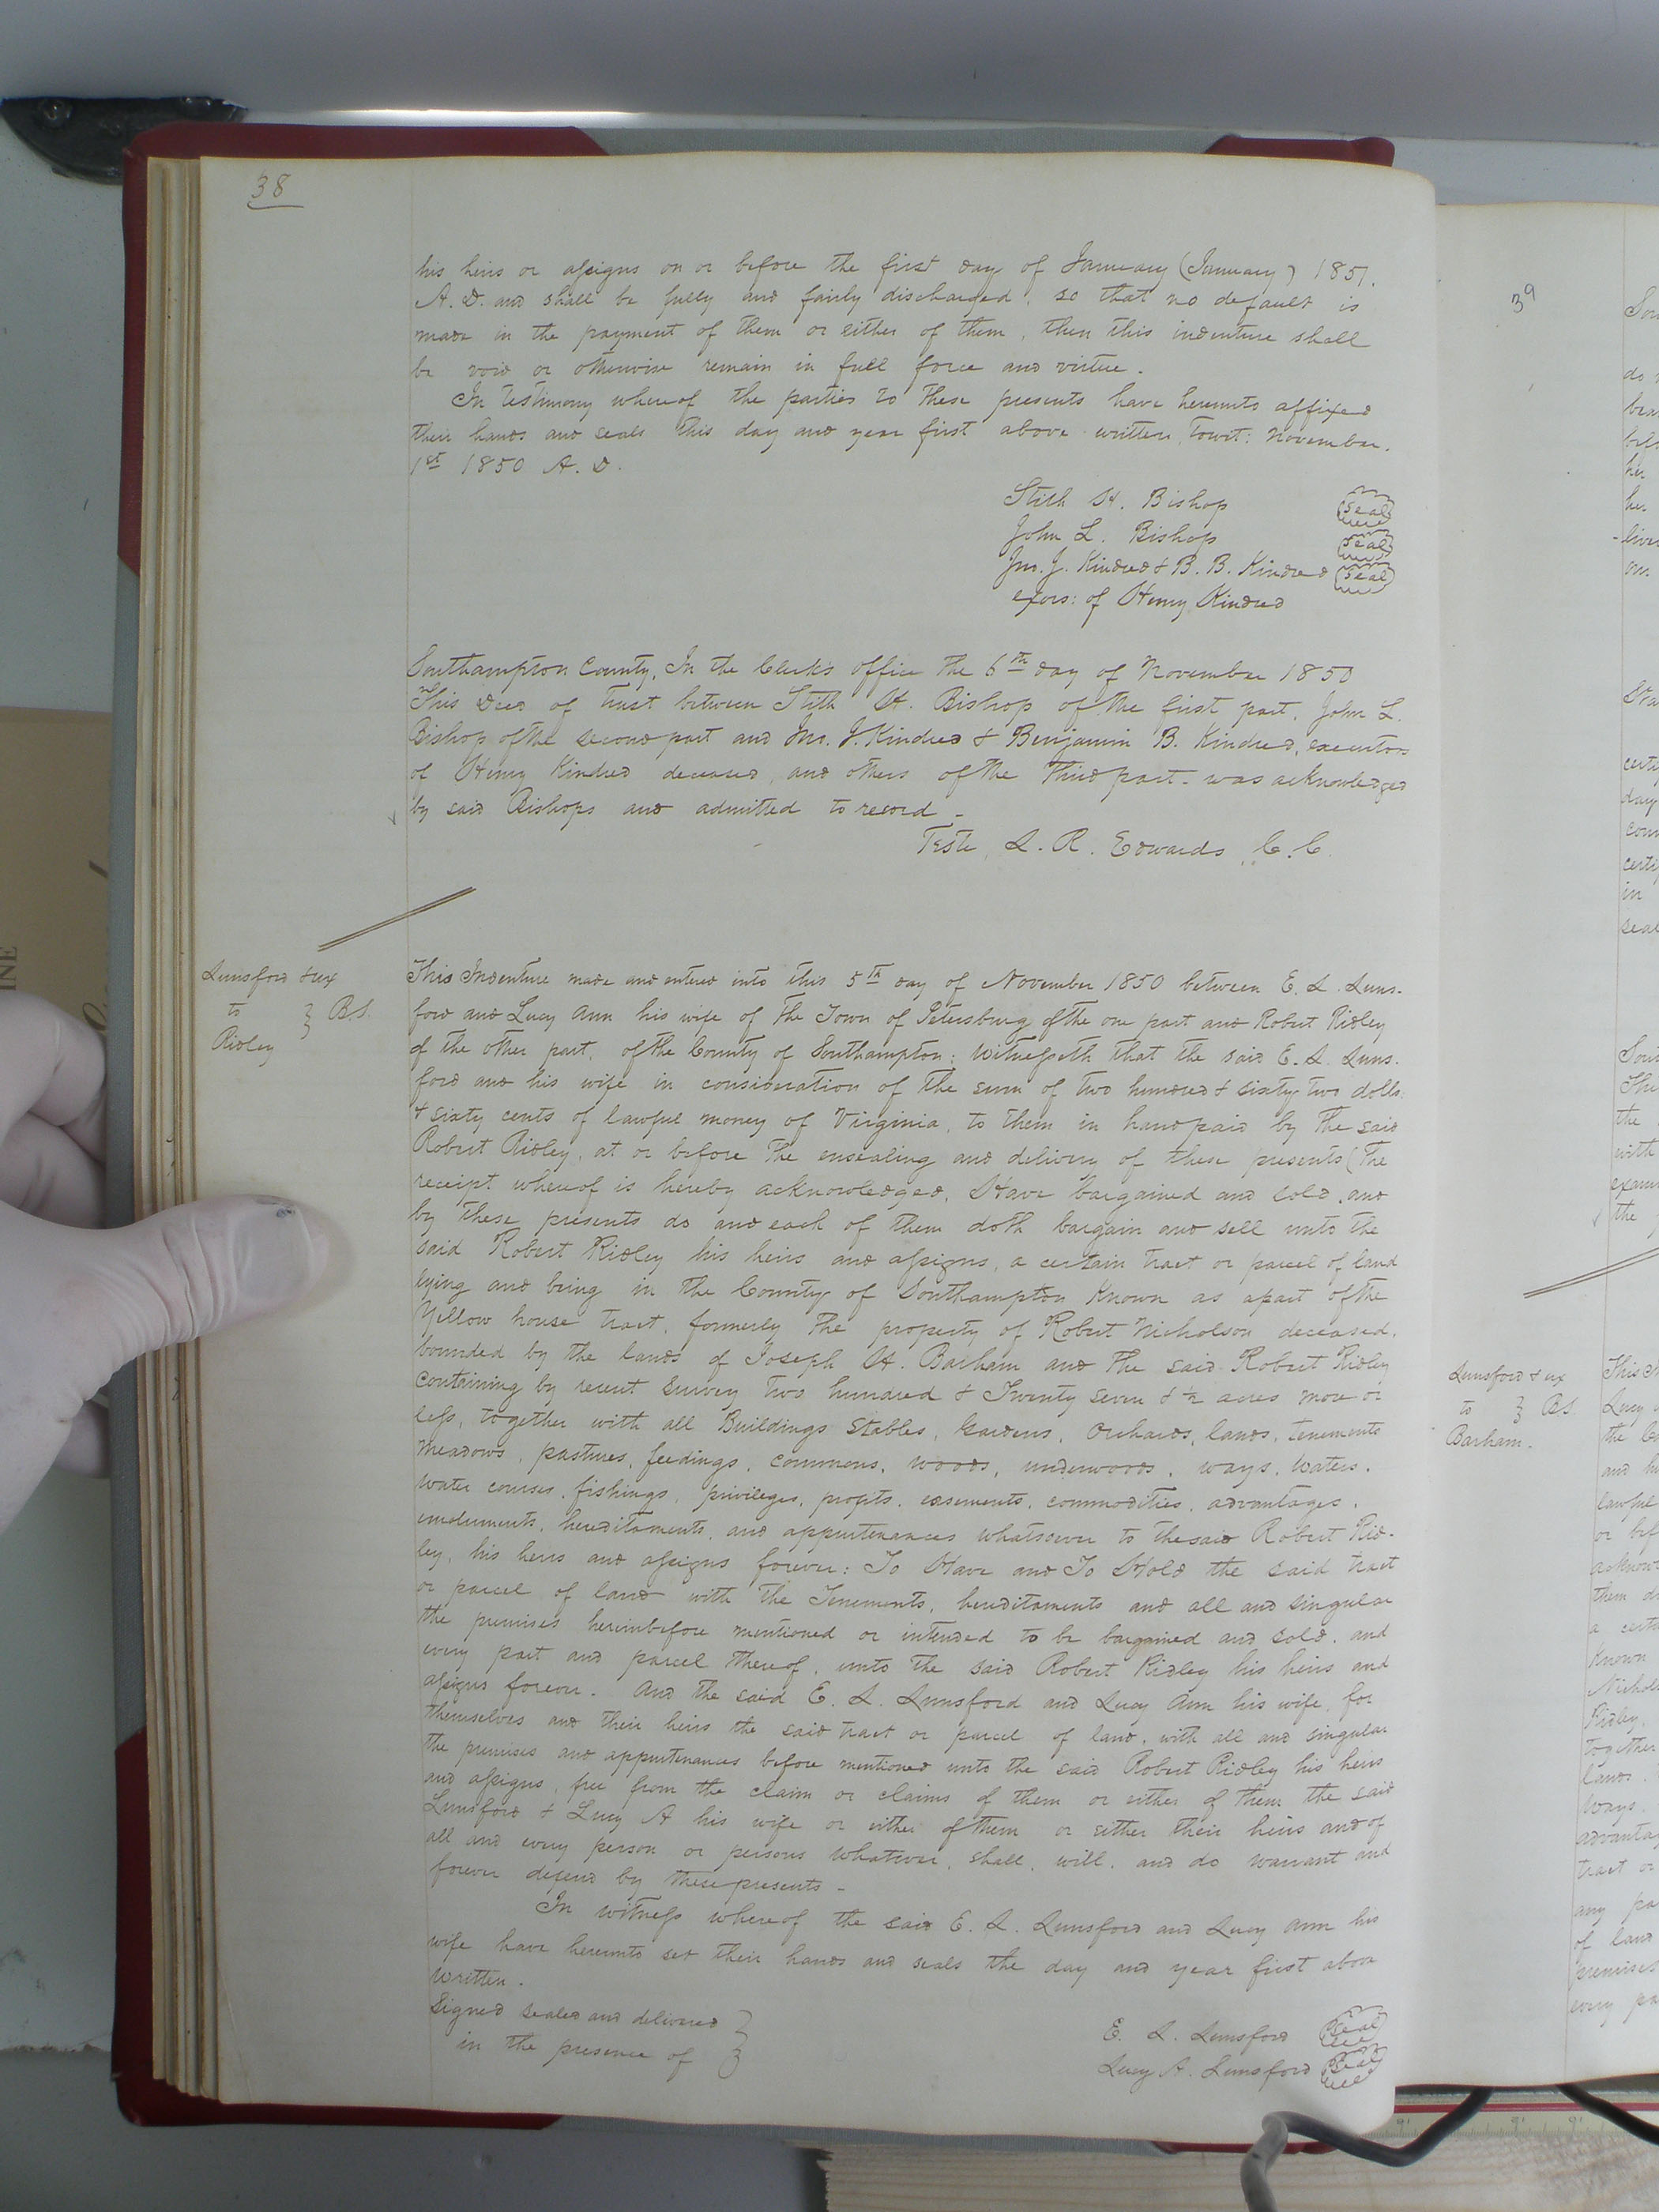 38
his heirs or assigns on or before the first day of January (January) 1851.
A. D. and shall be fully and fairly discharged, so that no default is
made in the payment of them or either of them, then this indenture shall
be void or otherwise remain in full force and virtue.
In testimony whereof the parties to these presents have hereunto affixed
their hands and seals this day and year first above written, towit: November.
1st 1850 A. D.
Stith H. Bishop Seal
John L. Bishop Seal
Jno. J. Kindred & B. B. Kindred Seal
exors: of Henry Kindred
Southampton County, In the Clerk's office the 6th day of November 1850
This Deed of Trust between Stith H. Bishop of the first part, John L.
Bishop of the second part and Jno. J. Kindred & Benjamin B. Kindred, executors
of Henry Kindred deceased, and others of the third part - was acknowledged
by said Bishops and admitted to record -
Teste, L. R. Edwards, C. C.
Lunsford & ux
to } B.S.
Ridley
This Indenture made and entered into this 5th day of November 1850 between E. L. Luns-
ford and Lucy Ann his wife of the Town of Petersburg of the one part and Robert Ridley
of the other part, of the County of Southampton: Witnesseth that the said E. L. Luns-
ford and his wife in consideration of the sum of two hundred & sixty two dolls:
& sixty cents of lawful money of Virginia, to them in hand paid by the said
Robert Ridley, at or before the ensealing and delivery of these presents (the
receipt whereof is hereby acknowledged, Have bargained and sold, and
by these presents do and each of them doth bargain and sell unto the
said Robert Ridley his heirs and assigns, a certain tract or parcel of land
lying and being in the County of Southampton Known as a part of the
Yellow house tract, formerly the property of Robert Nicholson deceased,
bounded by the lands of Joseph H. Barham and the said Robert Ridley
containing by recent survey two hundred & Twenty seven & ½ acres more or
less, together with all Buildings Stables, Gardens, Orchards, lands, tenements
meadows, pastures, feedings, commons, woods, underwoods, ways, waters,
water courses, fishings, privileges, profits, easements, commodities, advantages,
emoluments, hereditaments, and appurtenances whatsoever to the said Robert Rid-
ley, his heirs and assigns forever: To Have and To Hold the said tract
or parcel of land with the Tenements, hereditaments and all and singular
the premises hereinbefore mentioned or intended to be bargained and sold, and
every part and parcel thereof, unto the said Robert Ridley his heirs and
assigns forever. And the said E. L. Lunsford and Lucy Ann his wife, for
themselves and their heirs the said tract or parcel of land, with all and singular
the premises and appurtenances before mentioned unto the said Robert Ridley his heirs
and assigns, free from the claim or claims of them or either of them the said
Lunsford & Lucy A his wife or either of them or either their heirs and of
all and every person or persons whatever, shall, will, and do warrant and
forever defend by these presents -
In witness whereof the said E. L. Lunsford and Lucy Ann his
wife have hereunto set their hands and seals the day and year first above
written.
Signed sealed and delivered
in the presence of
E. L. Lunsford Seal
Lucy A. Lunsford Seal
39
Lunsford & ux
to } B.S.
Barham.